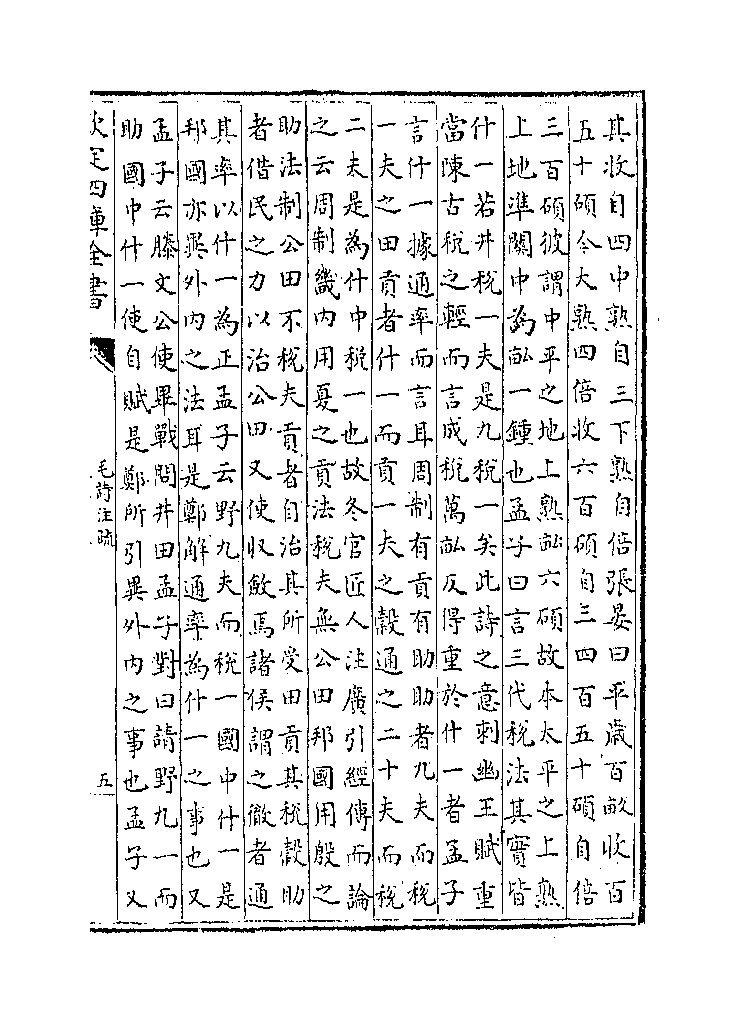 其收自四中熟自三下熟自倍張晏曰平歳百畝收百
五十碩今大熟四倍收六百碩自三四百五十碩自倍
三百碩彼謂中平之地上熟畝六碩故本太平之上熟
上地準關中為畝一鍾也孟子曰言三代稅法其實皆
什一若井稅一夫是九稅一矣此詩之意刺幽王賦重
當陳古稅之輕而言成稅萬畝反得重於什一者孟子
言什一據通率而言耳周制有貢有助助者九夫而稅
一夫之田貢者什一而貢一夫之榖通之二十夫而稅
二夫是為什中稅一也故冬官匠人注廣引經傳而論
之云周制畿内用夏之貢法稅夫無公田邦國用殷之
助法制公田不稅夫貢者自治其所受田貢其稅榖助
者借民之力以治公田又使収斂焉諸侯謂之徹者通
其率以什一為正孟子云野九夫而稅一國中什一是
邦國亦異外内之法耳是鄭解通率為什一之事也又
孟子云滕文公使畢戰問井田孟子對曰請野九一而
助國中什一使自賦是鄭所引異外内之事也孟子又
欽定四庫全書
毛詩注疏
五